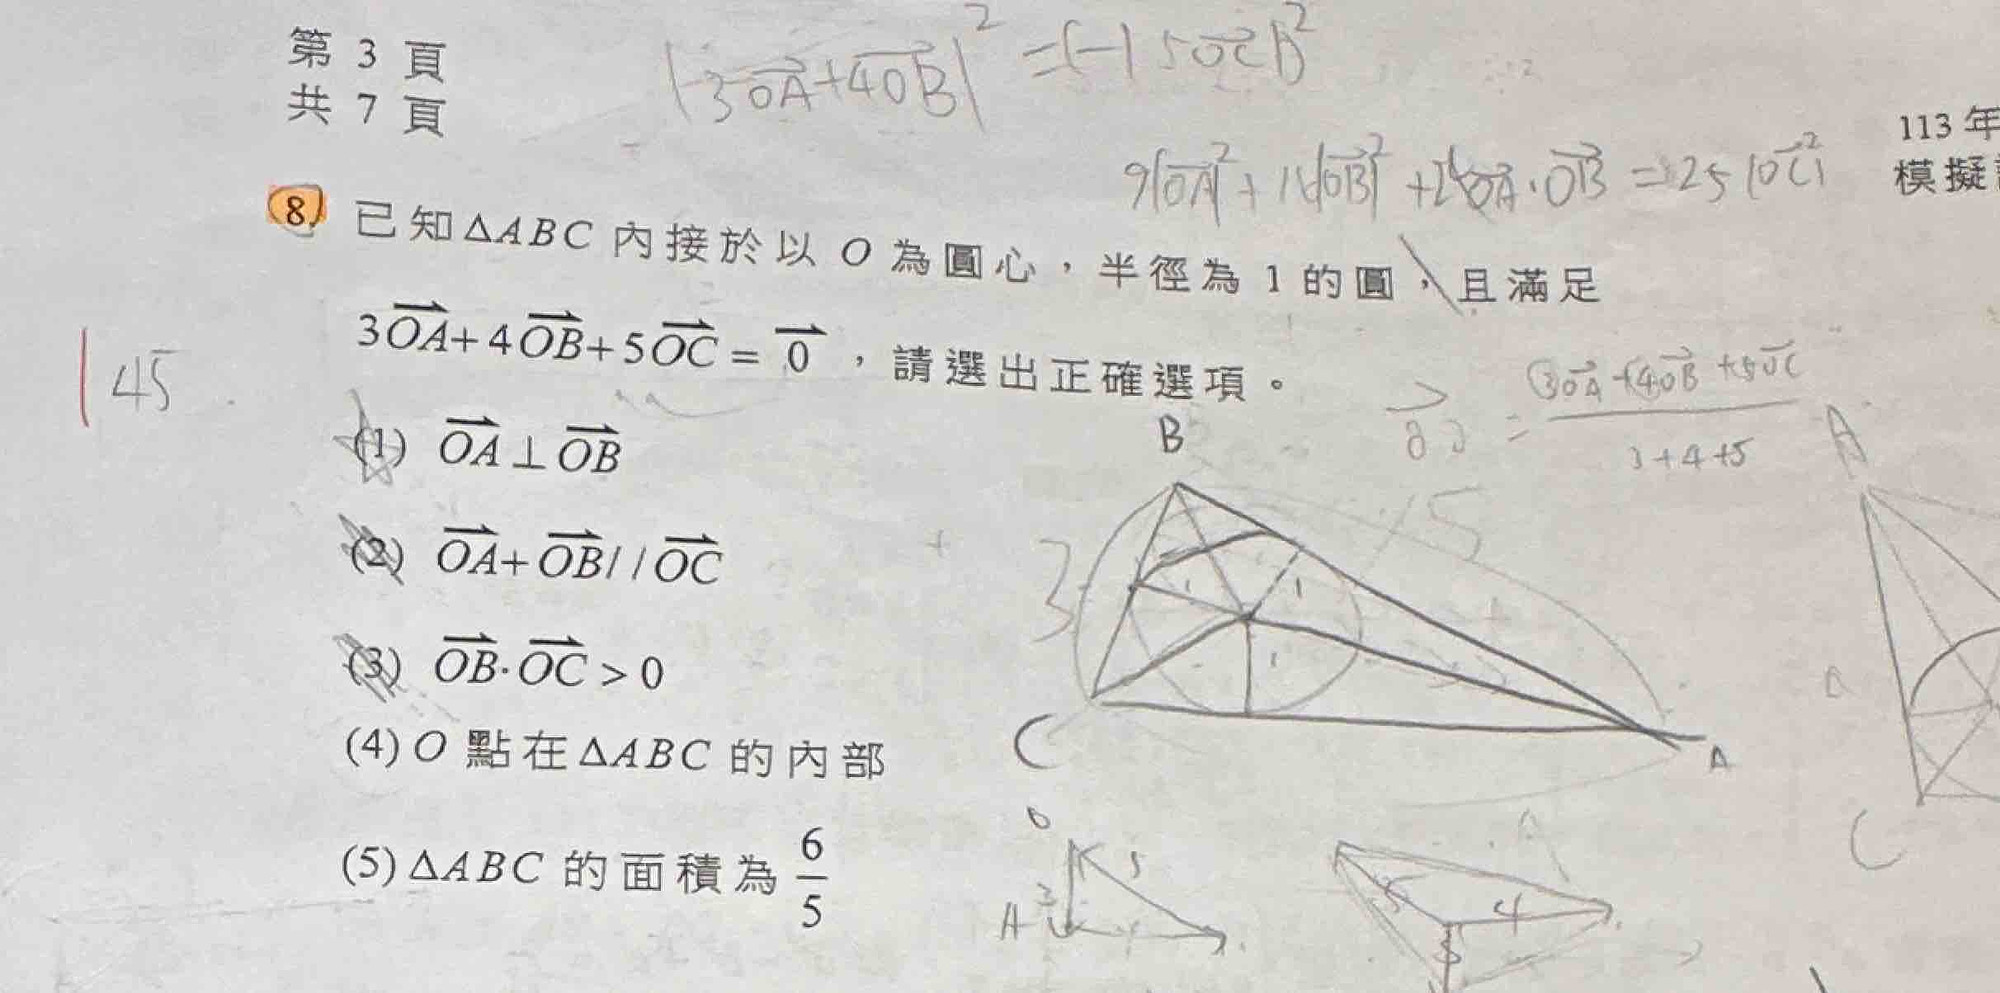 第 3 頁
共 7 頁
|3OA+4OB|² =|-15OC|)²
113 年
模擬
9|OA|²+16|OB|²+24OA·OB=25|OC|²
8. 已知△ABC 內接於以 O 為圓心，半徑為 1 的圓，且滿足
3OA+4OB+5OC=0，請選出正確選項。
145
3OA+4OB+5OC
3+4+5
(1) OA⊥OB
(2) OA+OB//OC
(3) OB·OC>0
(4) O 點在△ABC 的內部
(5) △ABC 的面積為 6/5
B
A
3
5
1
1
1
C
A
C
A
3
5
5
4
3